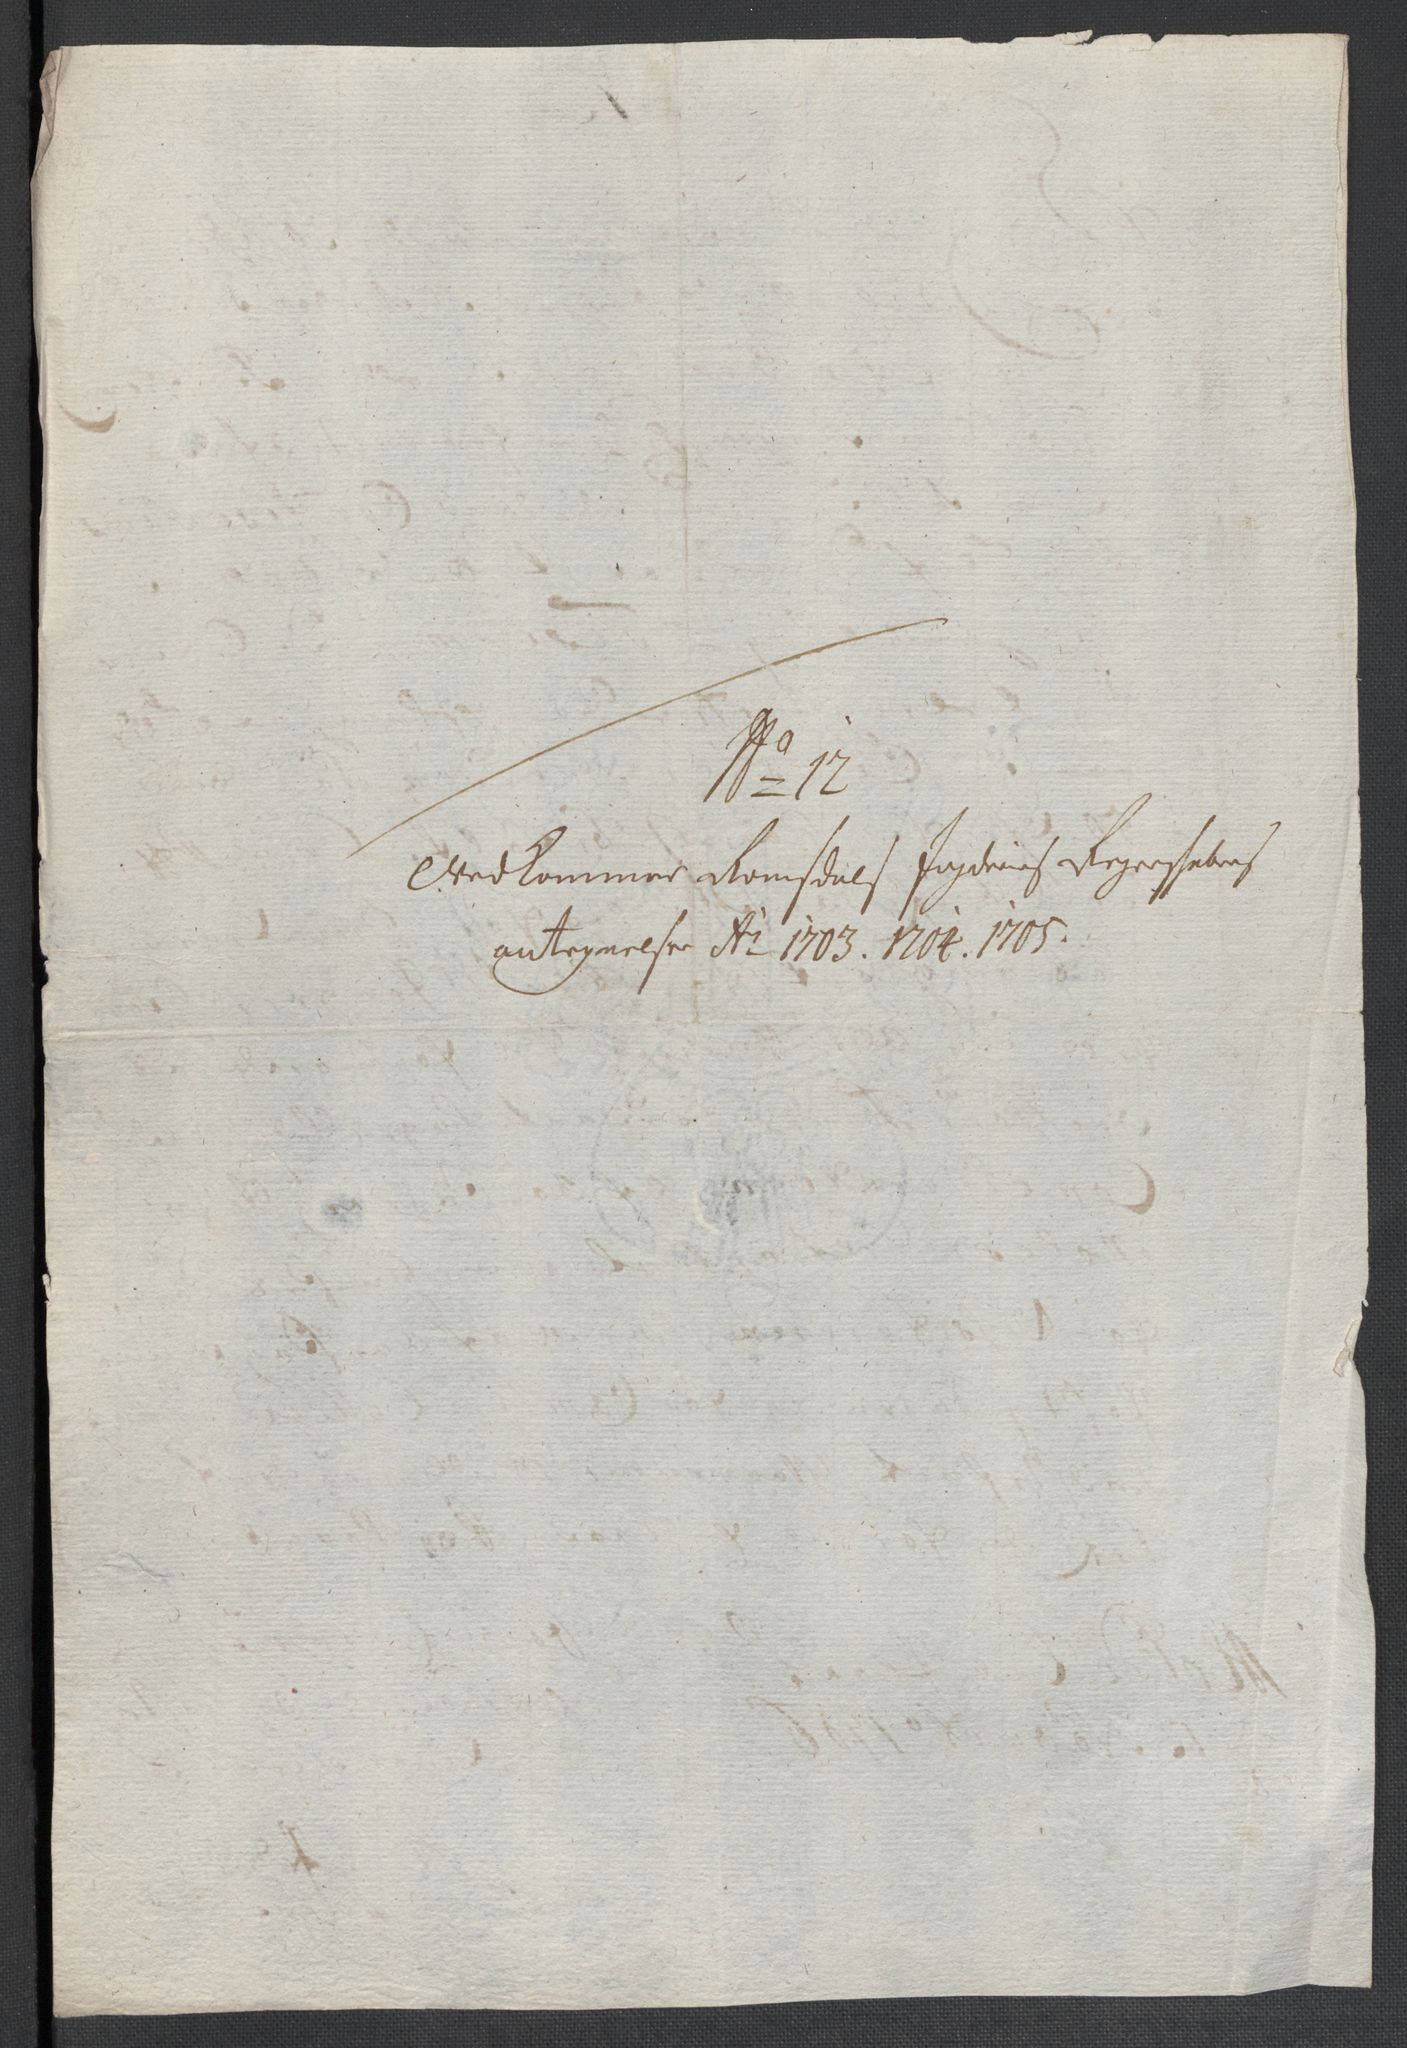 No 12
Vedkommer Romsdals fogderies Regenschabers
antegnelser Ao 1703. 1704. 1705.